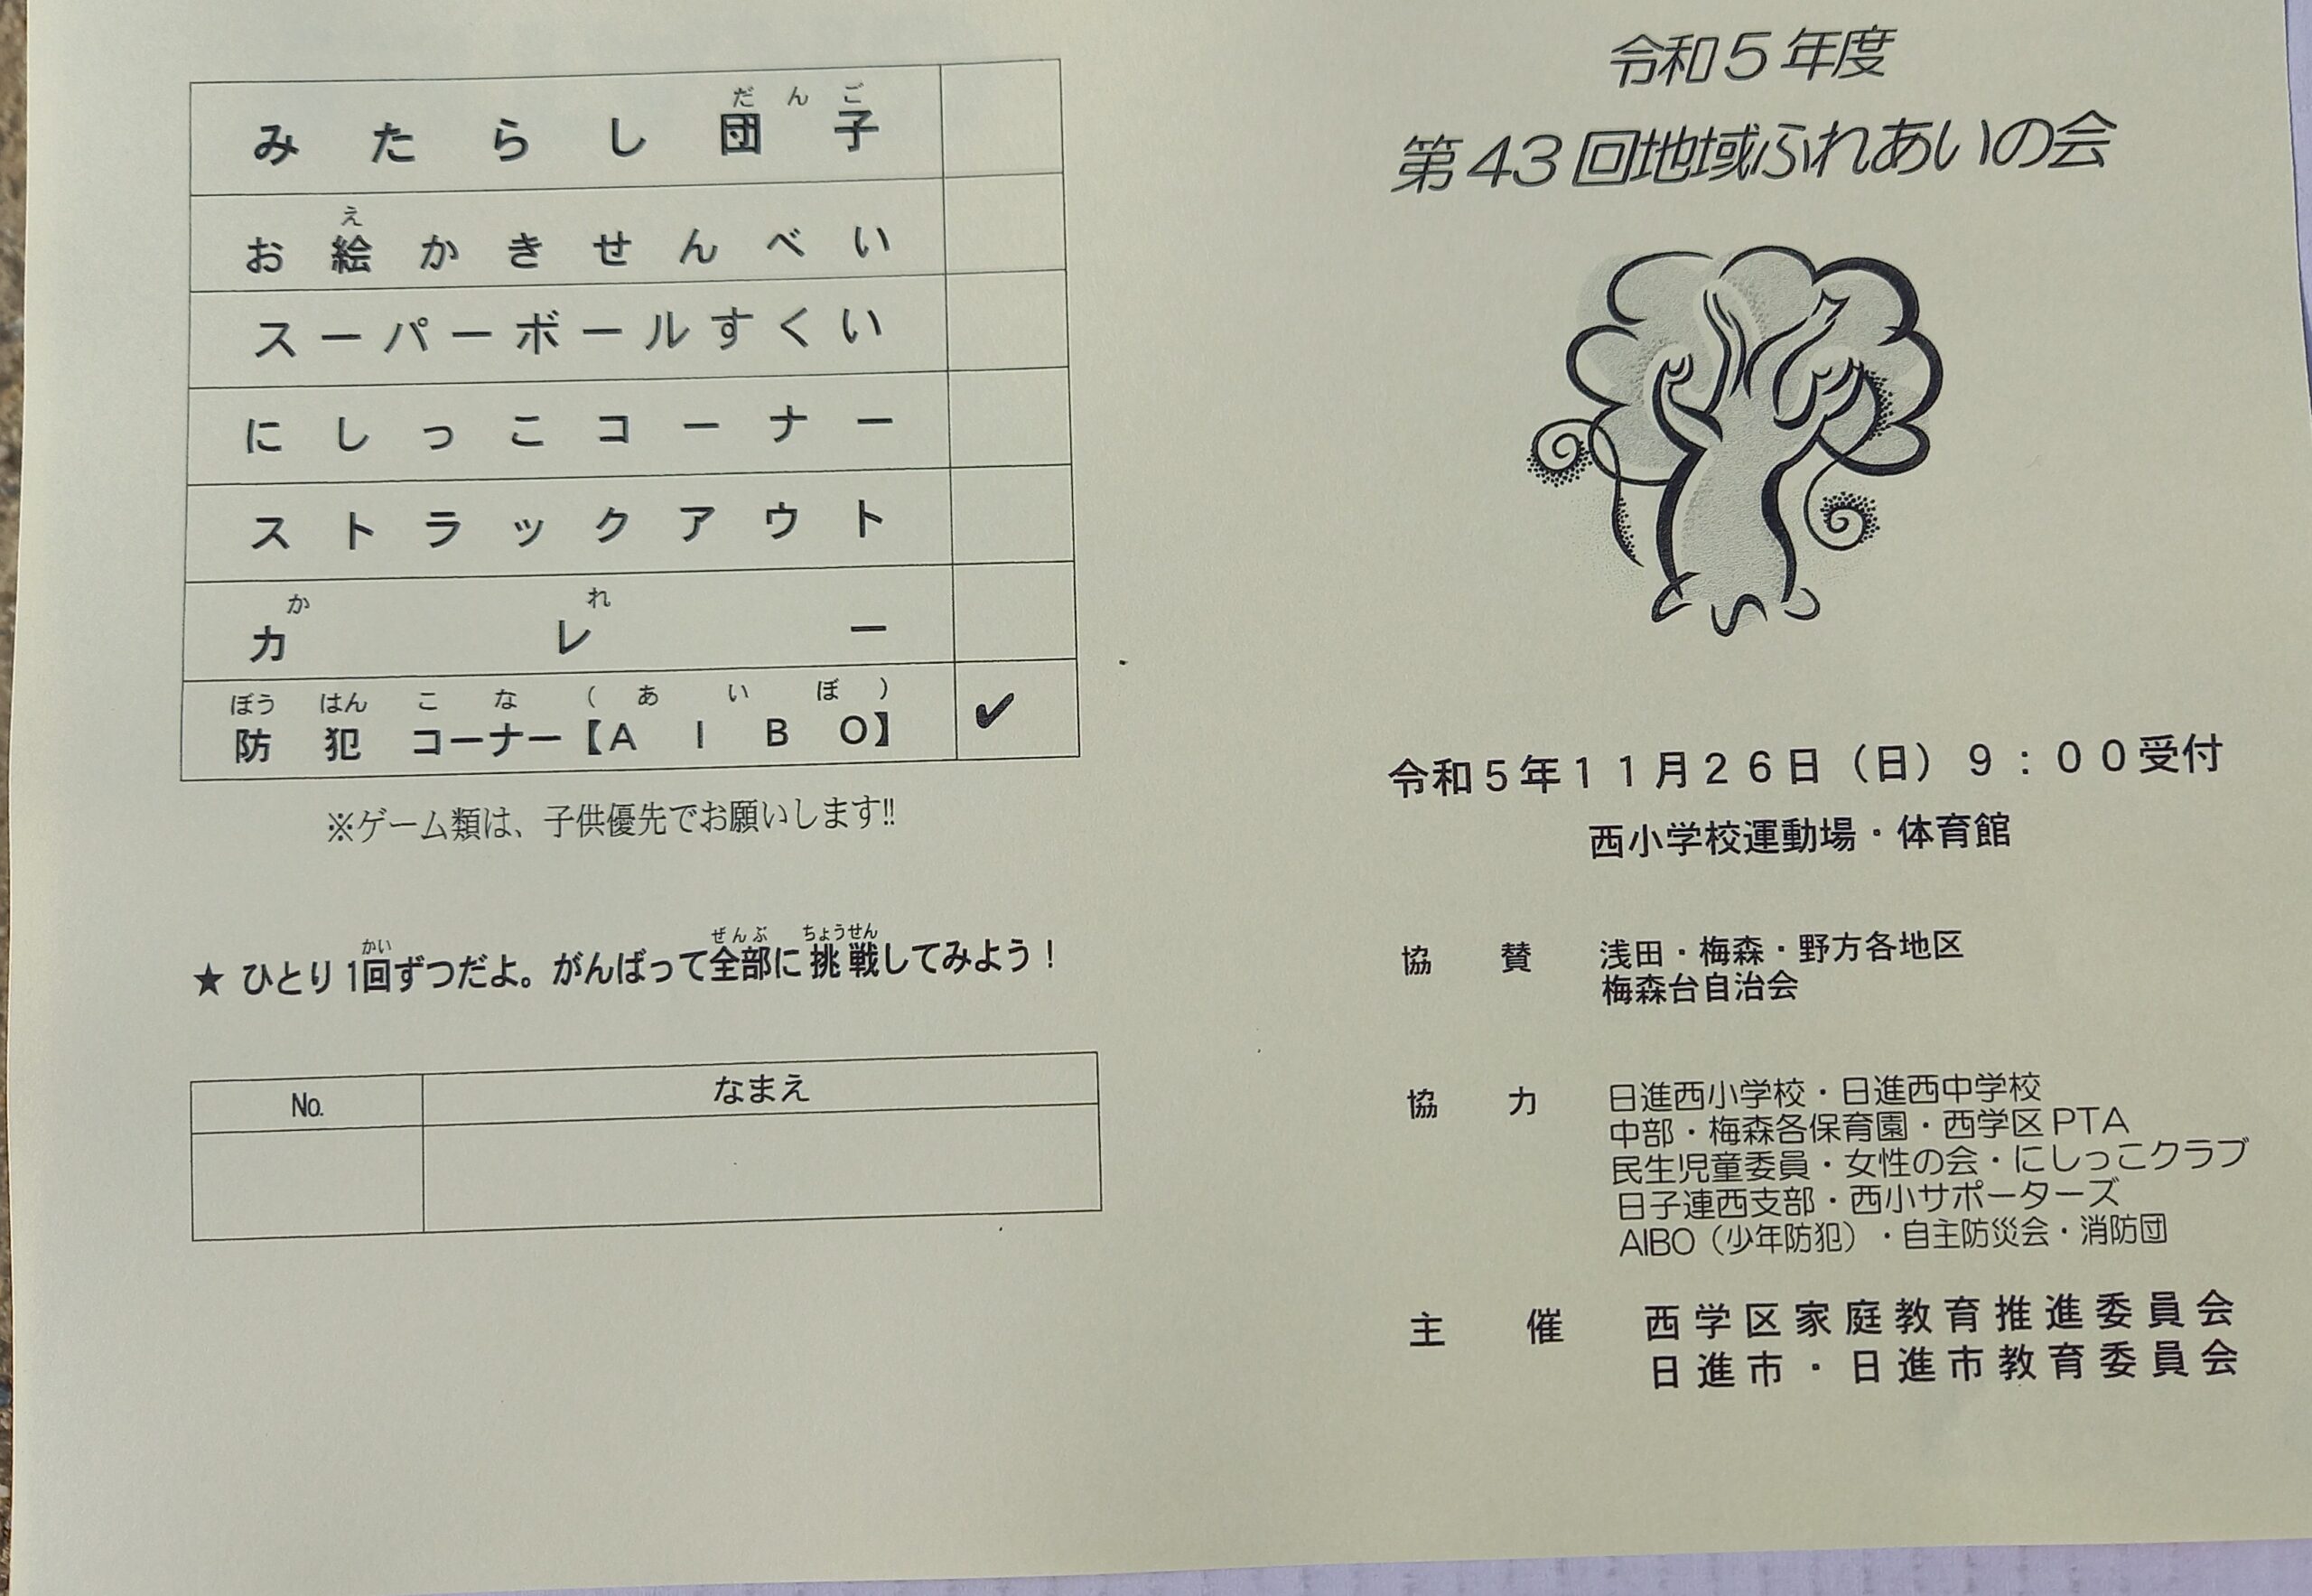 だんご
みたらし団子
え
お絵かきせんべい
スーパーボールすくい
にしっこコーナー
ストラックアウト
か れ
カレー
ぼう はん こ な （ あ い ぼ ）
防犯コーナー【AIBO】 ✔
※ゲーム類は、子供優先でお願いします!!
かい ぜんぶ ちょうせん
★ ひとり 1回ずつだよ。がんばって全部に挑戦してみよう！
No. なまえ
令和5年度
第43回地域ふれあいの会
令和５年１１月２６日（日）９：００受付
西小学校運動場・体育館
協賛 浅田・梅森・野方各地区
梅森台自治会
協力 日進西小学校・日進西中学校
中部・梅森各保育園・西学区PTA
民生児童委員・女性の会・にしっこクラブ
日子連西支部・西小サポーターズ
AIBO（少年防犯）・自主防災会・消防団
主催 西学区家庭教育推進委員会
日進市・日進市教育委員会